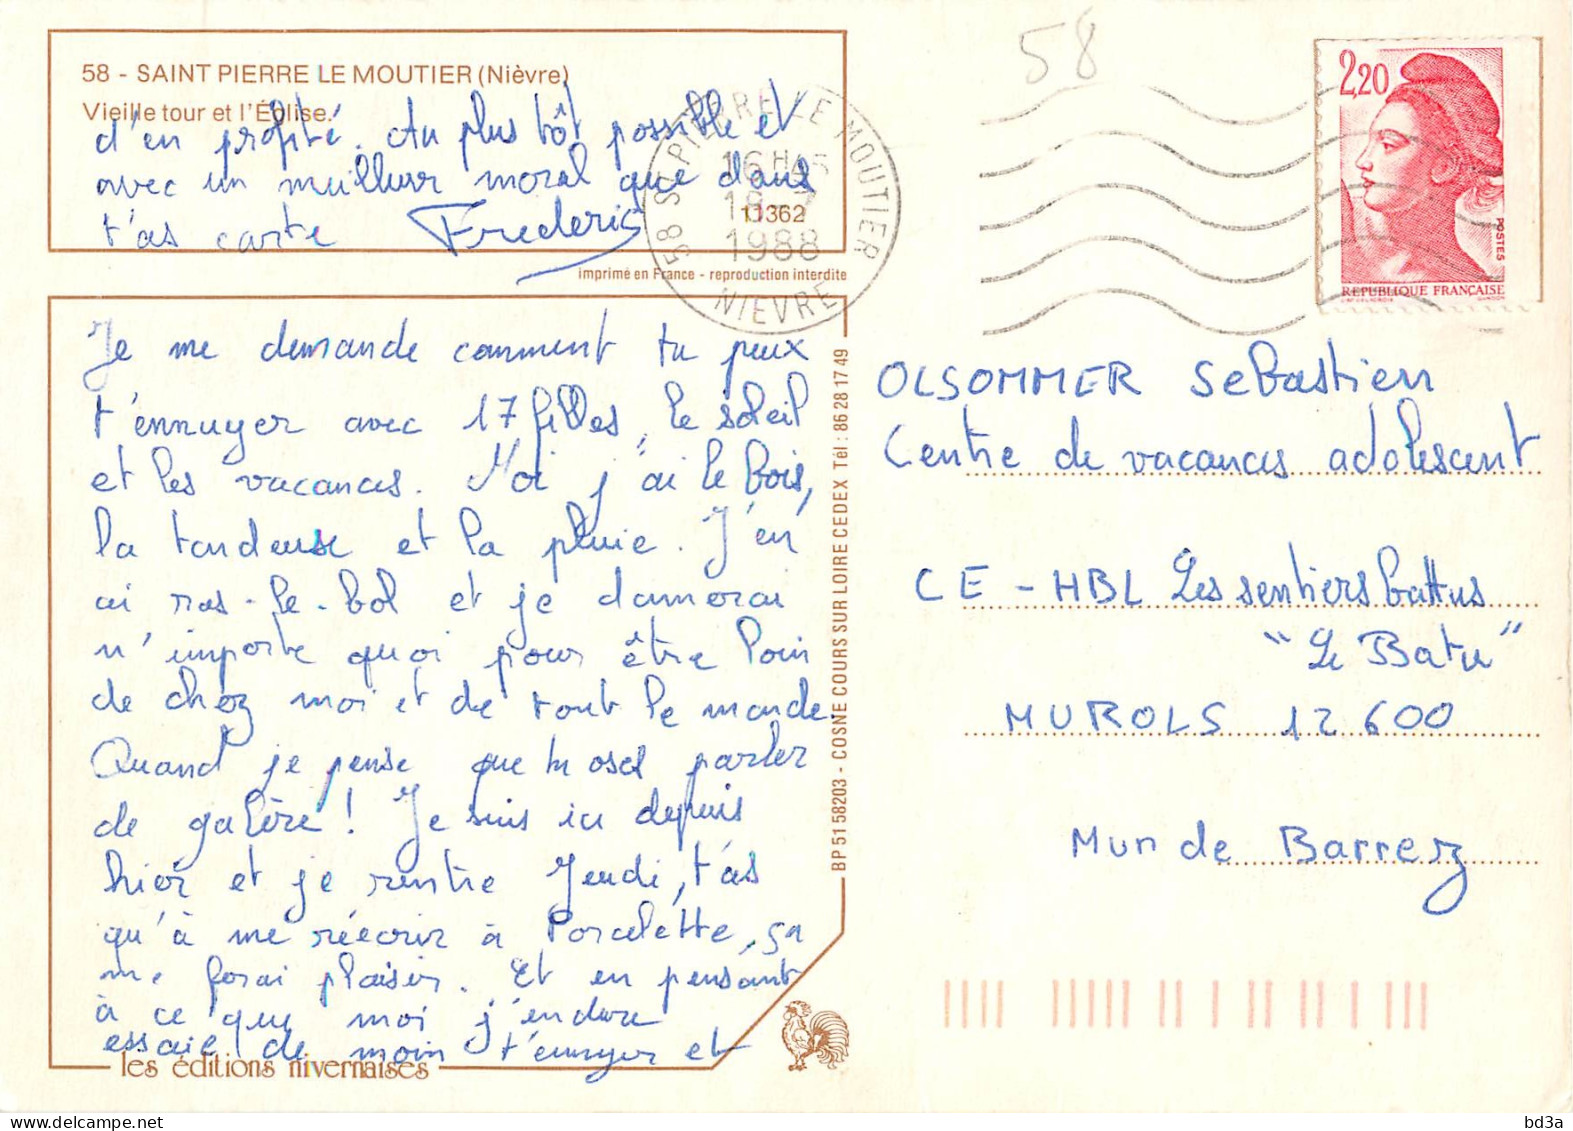 58
58 - SAINT PIERRE LE MOUTIER (Nièvre)
Vieille tour et l'Église.
11362
imprimé en France - reproduction interdite
58 ST PIERRE LE MOUTIER
16 H 45
18-7
1988
NIEVRE
2,20
POSTES
REPUBLIQUE FRANÇAISE
Je me demande comment tu peux
t'ennuyer avec 17 filles, le soleil
et les vacances. Moi j'ai le bois,
la tondeuse et la pluie. J'en
ai ras-le-bol et je donnerai
n'importe quoi pour être loin
de chez moi et de tout le monde.
Quand je pense que tu oses parler
de galère! Je suis ici depuis
hier et je rentre Jeudi, t'as
qu'à me réécrir à Porcelette, sa
me ferai plaisir. Et en pensant
à ce que moi j'endure
essaie de moin t'ennuyer et
d'en profité. Au plus tôt possible et
avec un meilleur moral que dans
t'as carte Frederic
BP 51 58203 - COSNE COURS SUR LOIRE CEDEX Tél : 86 28 17 49
les éditions nivernaises
OLSOMMER Sebastien
Centre de vacances adolescent
CE - HBL Les sentiers battus
"Le Batu"
MUROLS 12 600
Mur de Barrez
bd3a